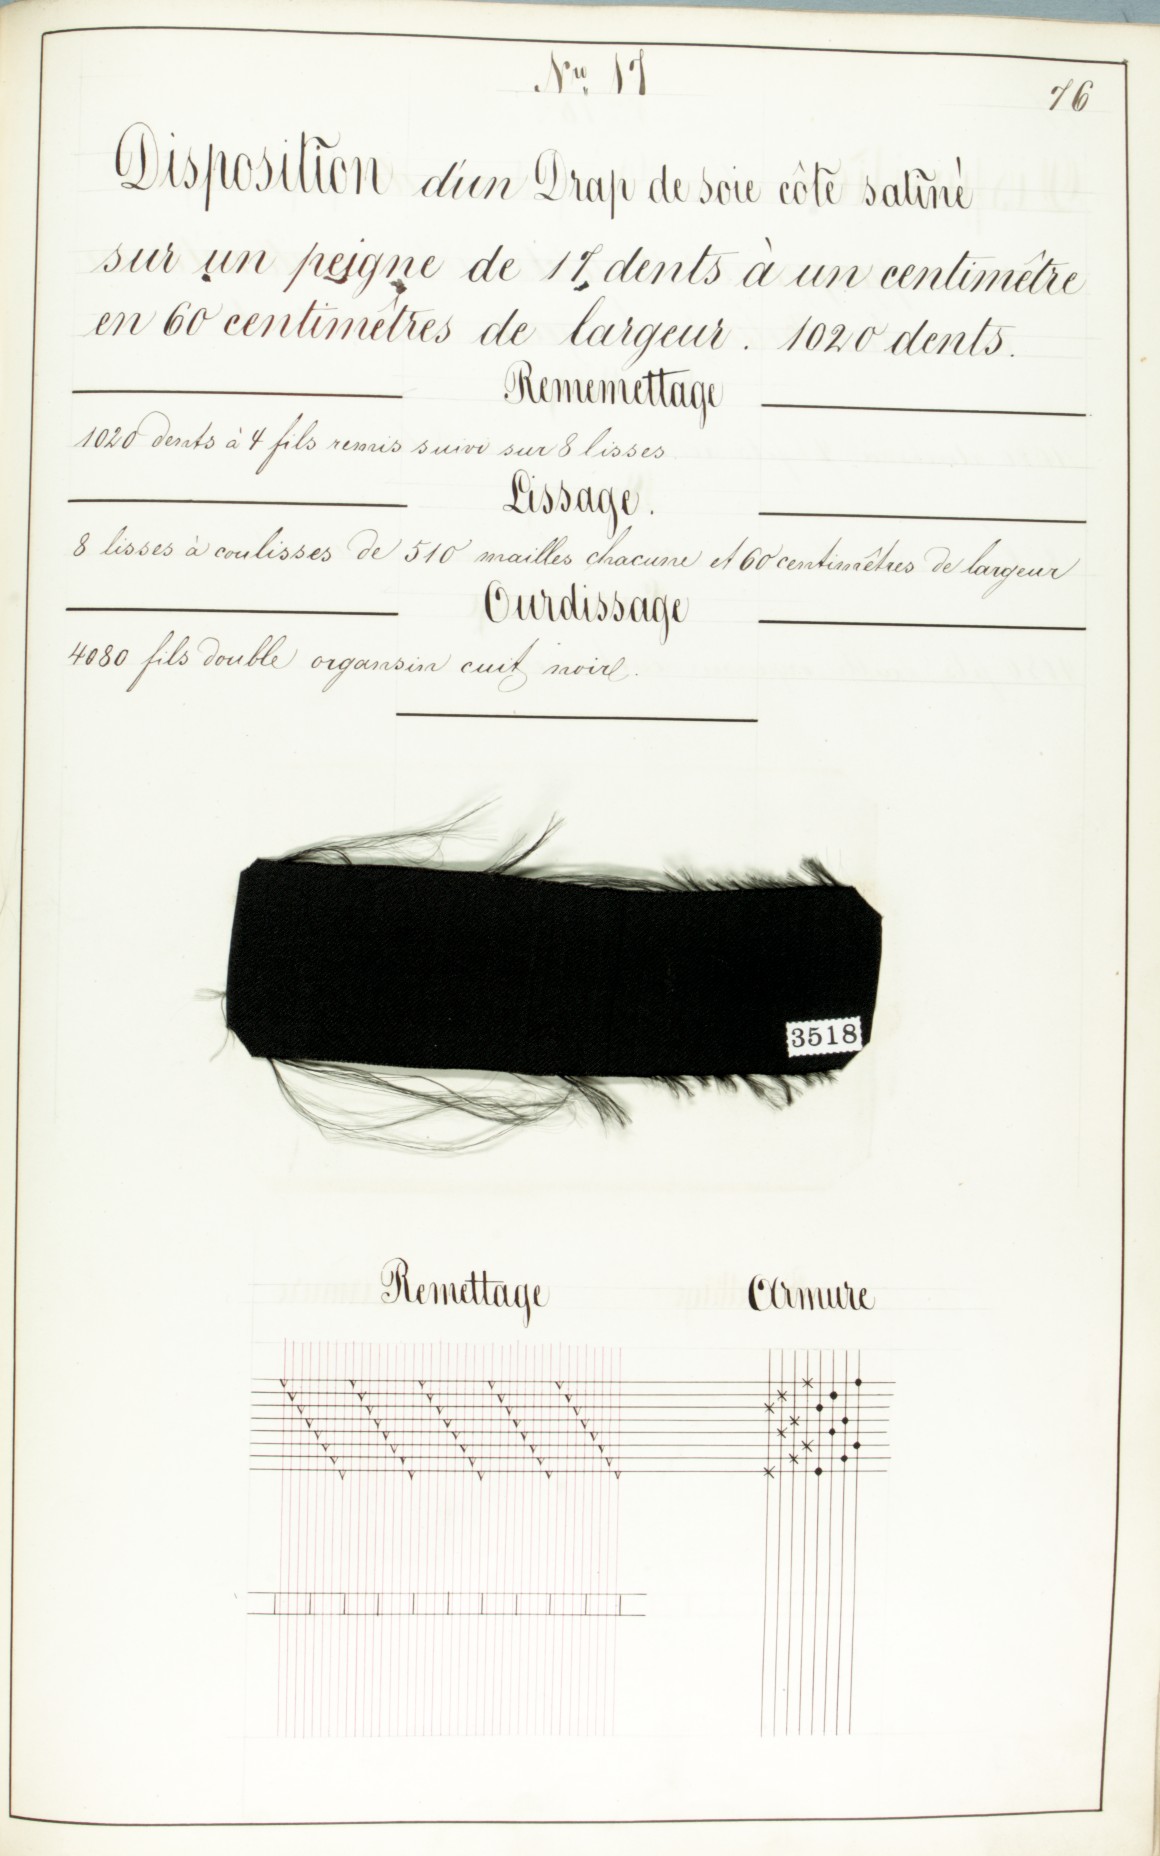 Nro. 17
76
Disposition d'un Drap de soie côté satiné
sur un peigne de 17 dents à un centimêtre
en 60 centimêtres de largeur. 1020 dents.
Rememettage
1020 dents à 4 fils remis suivi sur 8 lisses
Lissage.
8 lisses à coulisses de 510 mailles chacune et 60 centimêtres de largeur
Ourdissage
4080 fils double organsin cuit noir.
3518
Remettage
Armure